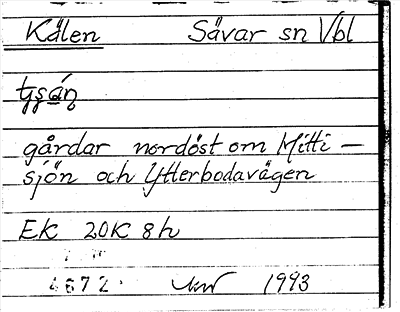 Kålen Sävar sn Vbl
gårdar nordöst om Mitti-
sjön och Ytterbodavägen
EK 20K 8h
4672 1993